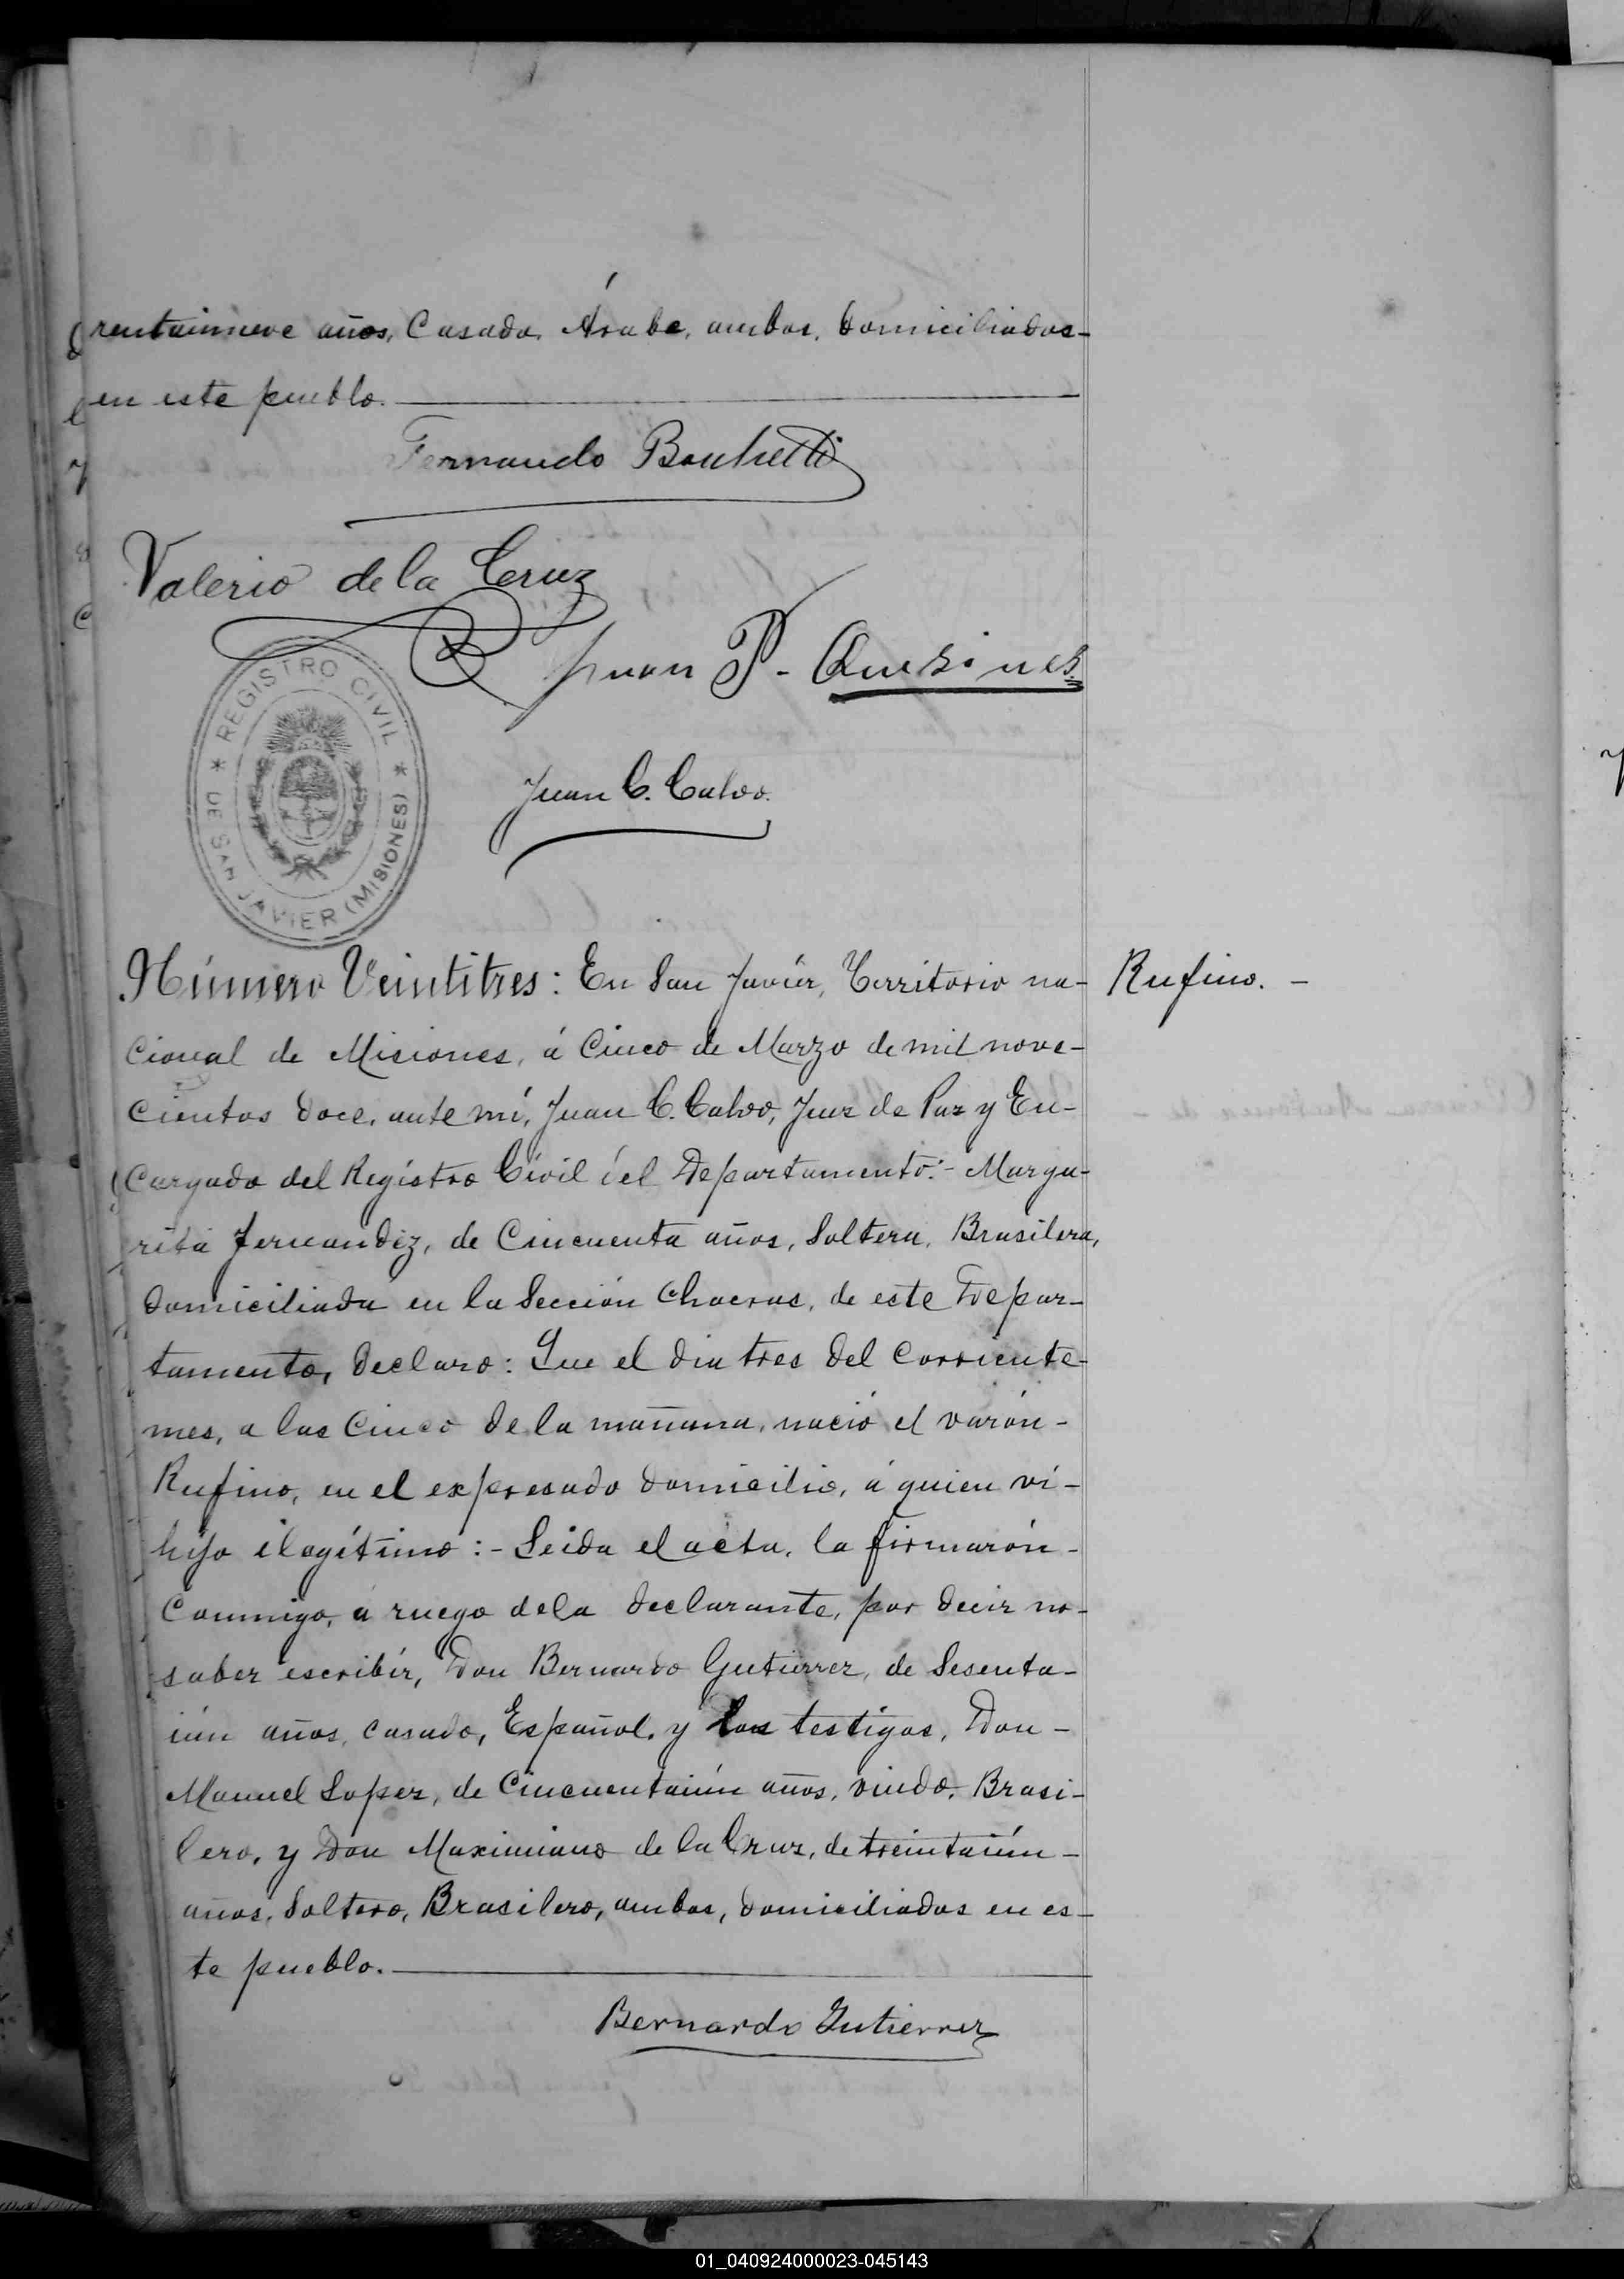 rentainueve años, Casado, Árabe, ambos, domiciliados-
en este pueblo.
Fernando
Valerio de la Cruz
Juan P.
REGISTRO CIVIL
* DE SAN JAVIER (MISIONES) *
Juan C. Calvo.
Número Veintitres: En San Javiér, Territorio na-
Rufino. -
cional de Misiones, á Cinco de Marzo de mil nove-
cientos doce, ante mí, Juan C. Calvo, Juez de Paz y En-
cargado del Registro Civil del Departamento:- Marga-
rita Fernandez, de Cincuenta años, Soltera, Brasilera,
domiciliada en la Sección Chacras, de este Depar-
tamento, declaro: Que el dia tres del corriente-
mes, a las Cinco de la mañana, nació el varón-
Rufino, en el expresado domicilio, á quien ví-
hijo ilegítimo:- Leida el acta, la firmarón-
Conmigo, a ruego dela declarante, por decir no-
saber escribír, Don Bernardo Gutierrez, de Sesenta-
iún años, casado, Español, y los testigos, Don-
Manuel Lopez, de Cincuentaiún años, viudo, Brasi-
lero, y Don Maximiano de la Cruz, de treintaiún-
años, Soltero, Brasilero, ambos, domiciliados en es-
te pueblo.
Bernardo Gutierrez
01_040924000023-045143